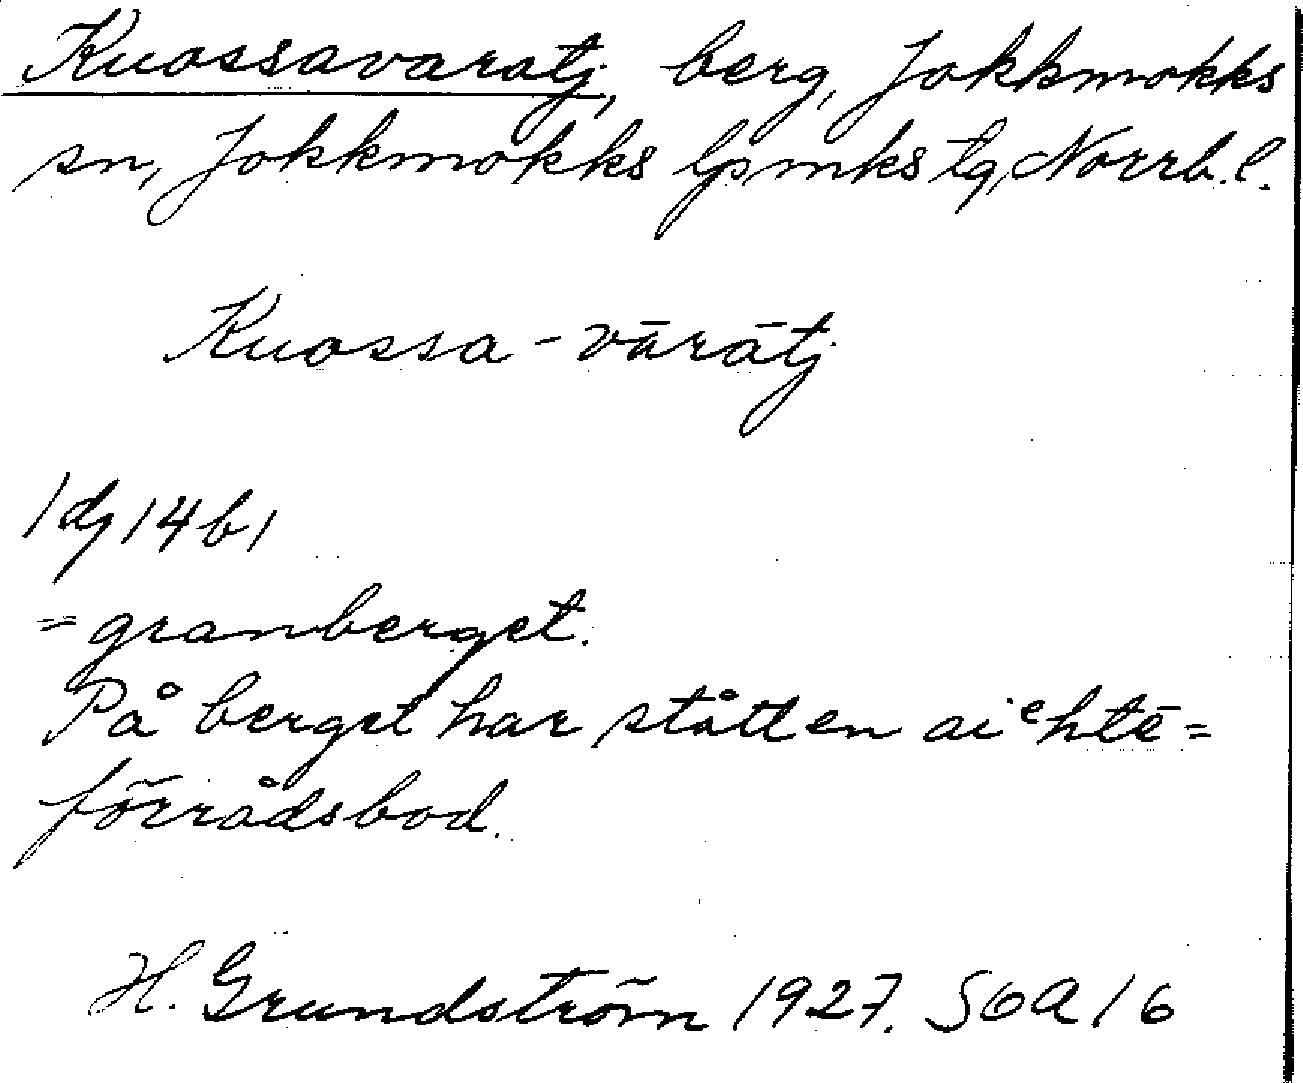 Kuossavaratj, berg, Jokkmokks
sn, Jokkmokks lpmks tg, Norrb. l.
Kuossa-vārātj
/dj 14b/
= granberget.
På berget har stått en aiᵉhtē=
förrådsbod.
H. Grundström 1927. SOA 16